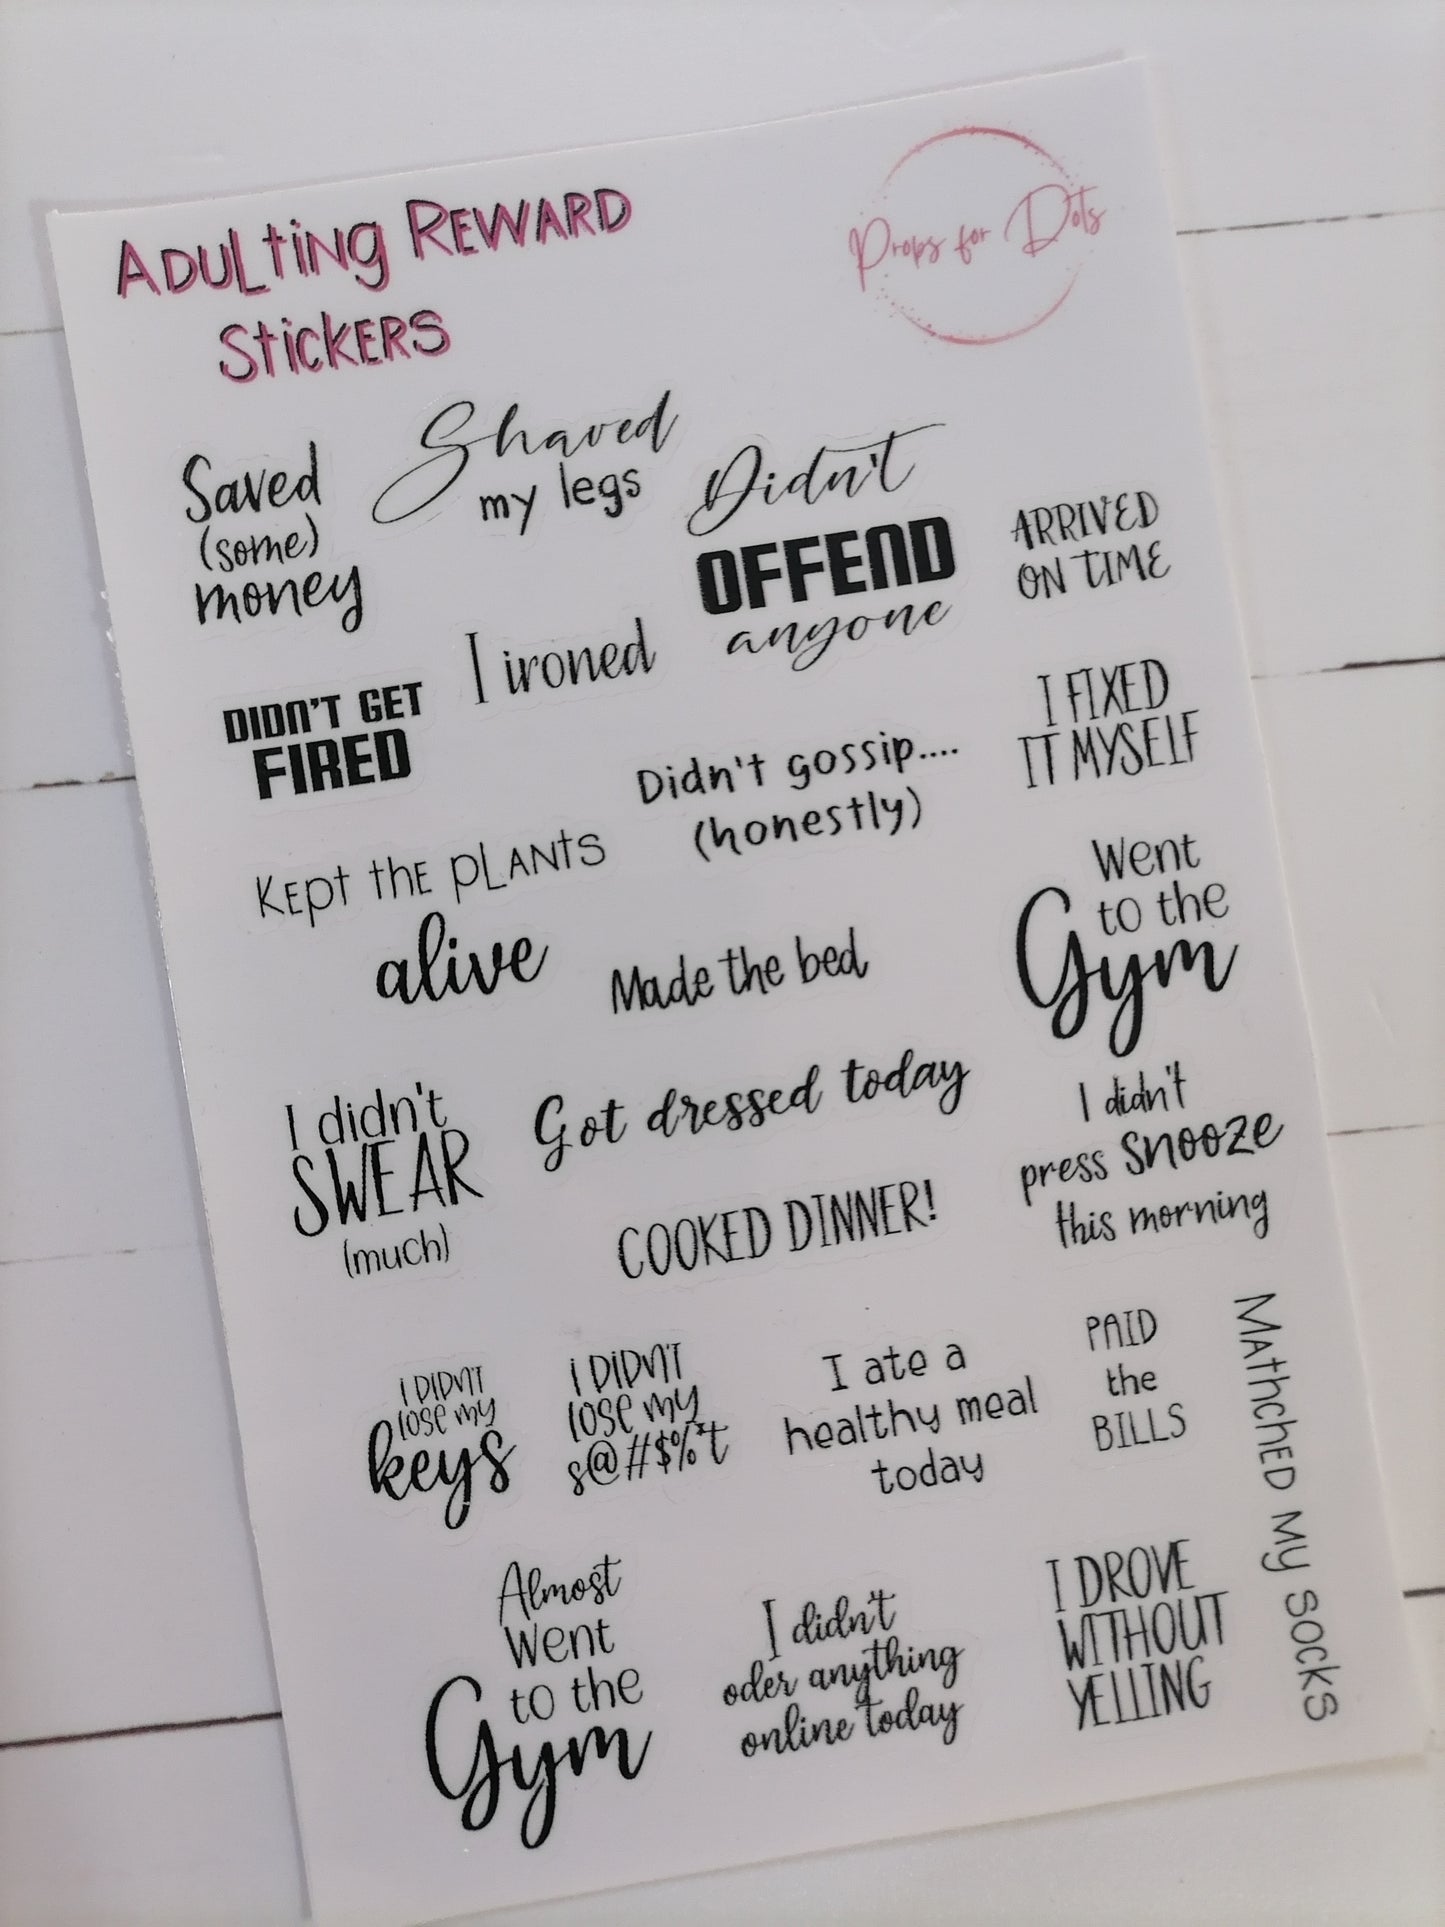 ADULTING REWARD
STICKERS
Props for Dots
Saved
(some)
money
Shaved
my legs
Didn't
OFFEND
anyone
ARRIVED
ON TIME
DIDN'T GET
FIRED
I ironed
Didn't gossip....
(honestly)
I FIXED
IT MYSELF
Kept the PLANTS
alive
Made the bed
Went
to the
Gym
I didn't
SWEAR
(much)
Got dressed today
I didn't
press snooze
this morning
COOKED DINNER!
I DIDN'T
lose my
keys
I DIDN'T
lose my
s@#$%*t
I ate a
healthy meal
today
PAID
the
BILLS
MATHCHED MY SOCKS
Almost
Went
to the
Gym
I didn't
oder anything
online today
I DROVE
WITHOUT
YELLING